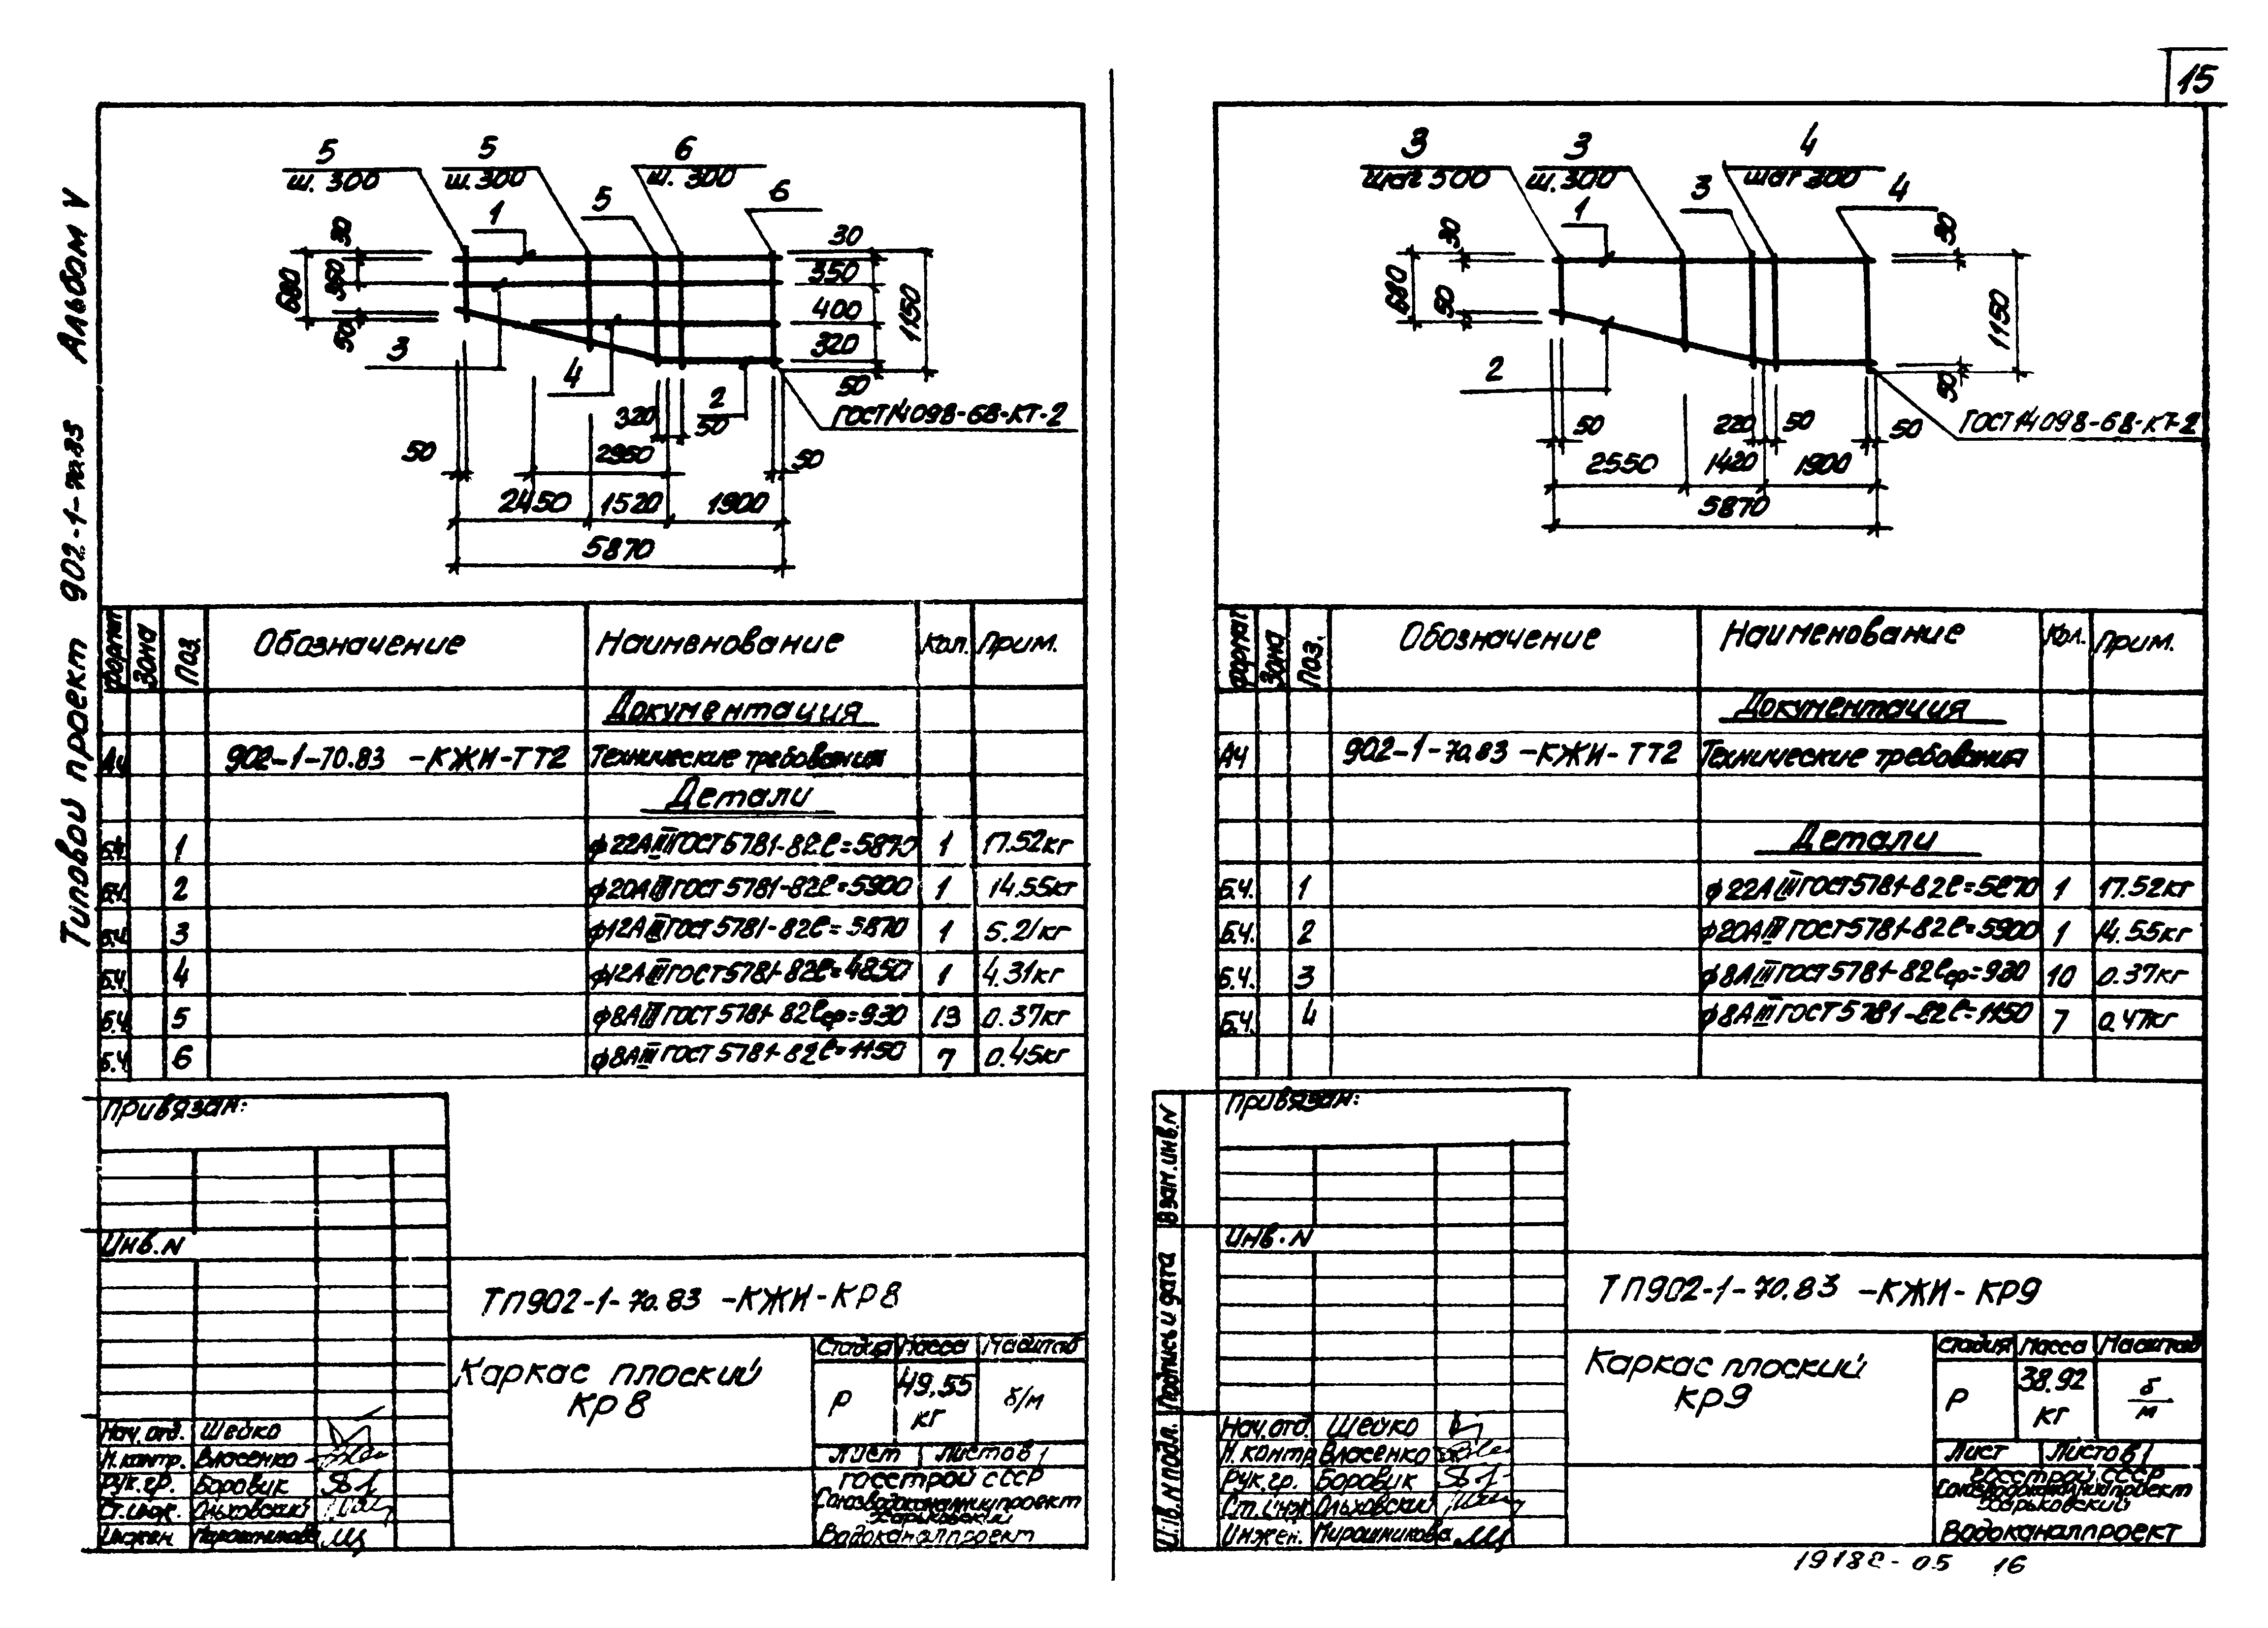 15
Типовой проект 902-1-70.83 Альбом V
5 5 6
ш. 300 ш. 300 ш. 300
1 5 6
30 350 50 680
30
350
400
320
50
1150
3 4 2
320 50
ГОСТ 14098-68-КТ-2
50 2950 50
2450 1520 1900
5870
Формат Зона Поз. Обозначение Наименование Кол. Прим.
Документация
А4 902-1-70.83 -КЖИ-ТТ2 Технические требования
Детали
Б.Ч. 1 ϕ22АIII ГОСТ 5781-82 ℓ=5870 1 17.52кг
Б.Ч. 2 ϕ20АIII ГОСТ 5781-82 ℓ=5900 1 14.55кг
Б.Ч. 3 ϕ12АIII ГОСТ 5781-82 ℓ=5870 1 5.21кг
Б.Ч. 4 ϕ12АIII ГОСТ 5781-82 ℓ=4850 1 4.31кг
Б.Ч. 5 ϕ8АIII ГОСТ 5781-82 ℓср=930 13 0.37кг
Б.Ч. 6 ϕ8АIII ГОСТ 5781-82 ℓ=1150 7 0.45кг
Привязан:
Инв. N
ТП902-1-70.83 -КЖИ-КР8
Каркас плоский
КР8
Стадия Масса Масштаб
Р 49,55 кг б/м
Лист Листов 1
Госстрой СССР
Союзводоканалниипроект
Харьковский
Водоканалпроект
Нач. отд. Шейко
Н. контр. Власенко
Рук. гр. Боровик
Ст. инж. Ольховский
Инжен. Мирошникова
3 3 4
шаг 300 ш. 300 шаг 300
1 3 4
30 50 680
30 50 1150
2
ГОСТ 14098-68-КТ-2
50 220 50 50
2550 1420 1900
5870
Формат Зона Поз. Обозначение Наименование Кол. Прим.
Документация
А4 902-1-70.83 -КЖИ-ТТ2 Технические требования
Детали
Б.Ч. 1 ϕ22АIII ГОСТ 5781-82 ℓ=5870 1 17.52кг
Б.Ч. 2 ϕ20АIII ГОСТ 5781-82 ℓ=5900 1 14.55кг
Б.Ч. 3 ϕ8АIII ГОСТ 5781-82 ℓср=930 10 0.37кг
Б.Ч. 4 ϕ8АIII ГОСТ 5781-82 ℓ=1150 7 0.47кг
Привязан:
Инв. N
Взам. инв. N
Подпись и дата
Инв. N подл.
ТП902-1-70.83 -КЖИ-КР9
Каркас плоский
КР9
Стадия Масса Масштаб
Р 38.92 кг б/м
Лист Листов 1
Госстрой СССР
Союзводоканалниипроект
Харьковский
Водоканалпроект
Нач. отд. Шейко
Н. контр. Власенко
Рук. гр. Боровик
Ст. инж. Ольховский
Инжен. Мирошникова
19188-05 16